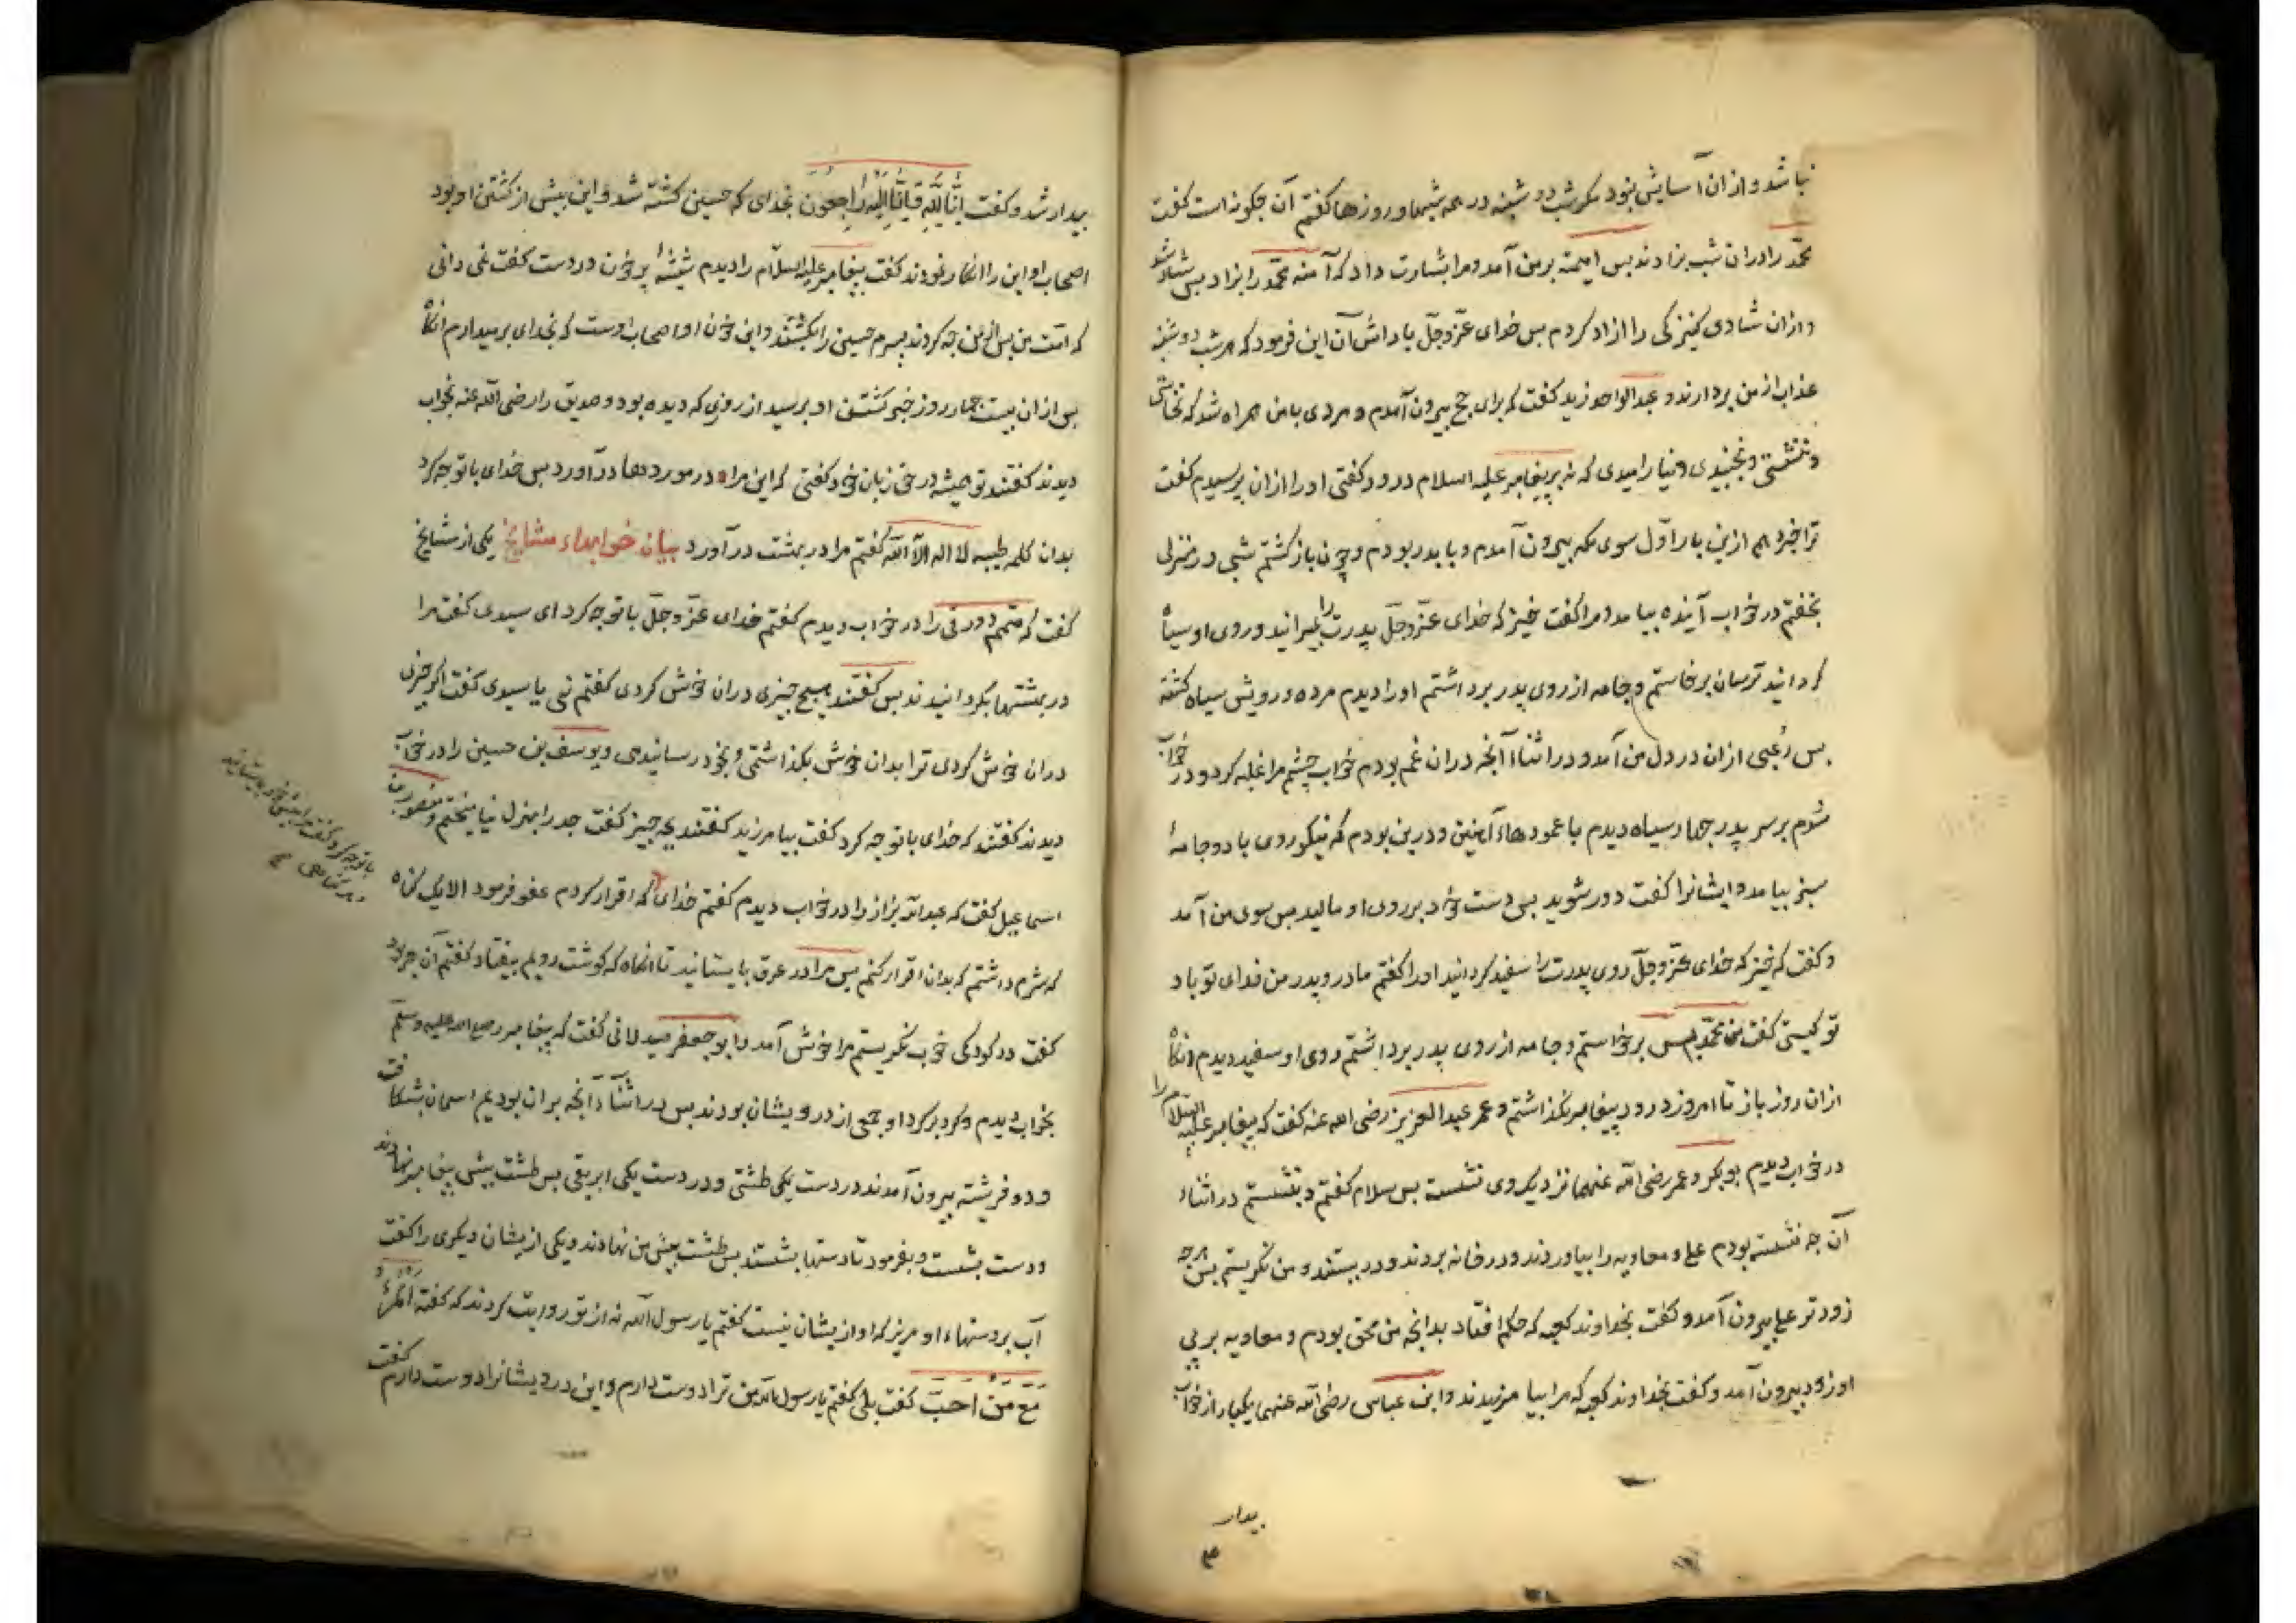 نباشد و ازان آسایش نبود مکر شب دوشنبه در همه شبها و روزها کفتم آن جکونه است کفت
محمّد را دران شب بزادند بس امیمه بر من آمد و مرا بشارت داد که آمنه محمّد را بزاد بس شاد شدم
و ازان شادی کنیزکی را ازاد کردم بس خدای عزّ وجلّ باداش آن این فرمود که هر شب دوشنبه
عذاب از من بردارند و عبد الواحد زید کفت که برای حج بیرون آمدم و مردی با من همراه شد که نخاستی
و ننشستی و نجنبیدی و نیارامیدی که نه بر پیغامبر علیه السلام درود کفتی او را ازان پرسیدم کفت
ترا خبر دهم ازین بار اوّل سوی مکه بیرون آمدم و با بدر بودم و چون باز کشتم شبی در منزلی
بخفتم در خواب آینده بیامد و مرا کفت خیز که خدای عزّ وجلّ پدرت را بمیرانید و روی او سیاه
کردانید ترسان برخاستم و جامه از روی پدر برداشتم او را دیدم مرده و رویش سیاه کشته
بس رُعبی ازان در دل من آمد و در اثناء آنجه دران غم بودم خواب چشم مرا غلبه کرد و در خواب
شدم بر سر پدر جهار سیاه دیدم با عمودهاء آهنین و درین بودم که نیکو روی با دو جامهٔ
سبز بیامد و ایشانرا کفت دور شوید بس دست خود بر روی او مالید بس سوی من آمد
و کفت که خیز که خدای عزّ وجلّ روی پدرت را سفید کردانید او را کفتم مادر و پدر من فدای تو باد
تو کیستی کفت من محمّدم بس برخواستم و جامه از روی پدر برداشتم روی او سفید دیدم انکاه
ازان روز باز تا امروز درود پیغامبر نکذاشتم و عمر عبد العزیز رضی الله عنه کفت که پیغامبر علیه السلام را
در خواب دیدم بوبکر و عمر رضی الله عنهما نزدیک وی نشسته بس سلام کفتم و بنشستم در اثناء
آن جه نشسته بودم علی و معاویه را بیاوردند و در خانه بردند و در ببستند و من نکریستم بس هر جه
زودتر علی بیرون آمد و کفت بخداوند کعبه که حکم افتاد بدانجه من محق بودم و معاویه بر پی
او زود بیرون آمد و کفت بخداوند کعبه که مرا بیامرزیدند و ابن عباس رضی الله عنهما یکبار از خواب
بیدار
بیدار شد و کفت اِنَّا لِلّهِ وَ اِنَّا اِلَیْهِ رَاجِعُون بخدای که حسین کشته شد و این پیش از کشتن او بود
اصحاب او این را انکار نمودند کفت پیغامبر علیه السلام را دیدم شیشهٔ پر خون در دست کفت نمی دانی
که امّت من پس از من جه کردند پسرم حسین را بکشتند و این خون او و اصحاب اوست که بخدای بر میدارم انکاه
بس ازان بیست جهار روز خبر کشتن او برسید از روزی که دیده بود و صدیق را رضی الله عنه بخواب
دیدند کفتند تو همیشه در حق زبان خود کفتی که این مرا در موردها درآورد بس خدای با تو جه کرد
بدان کلمه طیبه لا اله الا الله کفتم مرا در بهشت درآورد بیان خوابهاء مشایخ یکی از مشایخ
کفت که متمم دورقی را در خواب دیدم کفتم خدای عزّ وجلّ با تو جه کرد ای سیدی کفت مرا
در بهشتها بکردانیدند بس کفتند هیچ چیزی دران خوش کردی کفتم نی یا سیدی کفت اکر چیزی
دران خوش کردی ترا بدان خوش بکذاشتمی و بخود رسانیدمی و یوسف بن حسین را در خواب
دیدند کفتند که خدای با تو جه کرد کفت بیامرزید کفتند بجه چیز کفت جد را بهزل نیامیختم و منصور بن
اسماعیل کفت که عبد الله بزاز را در خواب دیدم کفتم خدای که اقرار کردم عفو فرمود الا یک کناه
که شرم داشتم که بدان اقرار کنم بس مرا در عرق بایستانید تا انکاه که کوشت رویم بیفتاد کفتم آن چه بود
کفت در کودکی خوب نکریستم مرا خوش آمد و ابو جعفر صیدلانی کفت که پیغامبر صلی الله علیه وسلّم
بخواب دیدم و کرد بر کرد او جمعی از درویشان بودند بس در اثناء آنجه بران بودیم اسمان بشکافت
و دو فرشته بیرون آمدند در دست یکی طشتی و در دست یکی ابریقی بس طشت پیش پیغامبر نهادند
و دست بشست و بفرمود تا دستها بشستند بس طشت پیش من نهادند و یکی از یشان دیکری را کفت
آب بر دستهاء او مریز که او از یشان نیست کفتم یا رسول الله نه از تو روایت کردند که کفته الْمَرْءُ
مَعَ مَنْ اَحَبَّ کفت بلی کفتم یا رسول الله من ترا دوست دارم و این درویشانرا دوست دارم کفت
با تو جه کرد کفت مرا پیش خود بایستانید